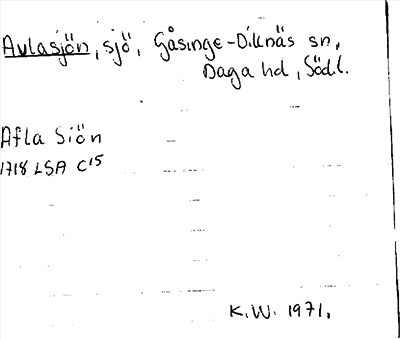 Avlasjön, sjö, Gåsinge-Dillnäs sn,
Daga hd, Södl.
Afla Siön
1718 LSA C15
K.W. 1971.